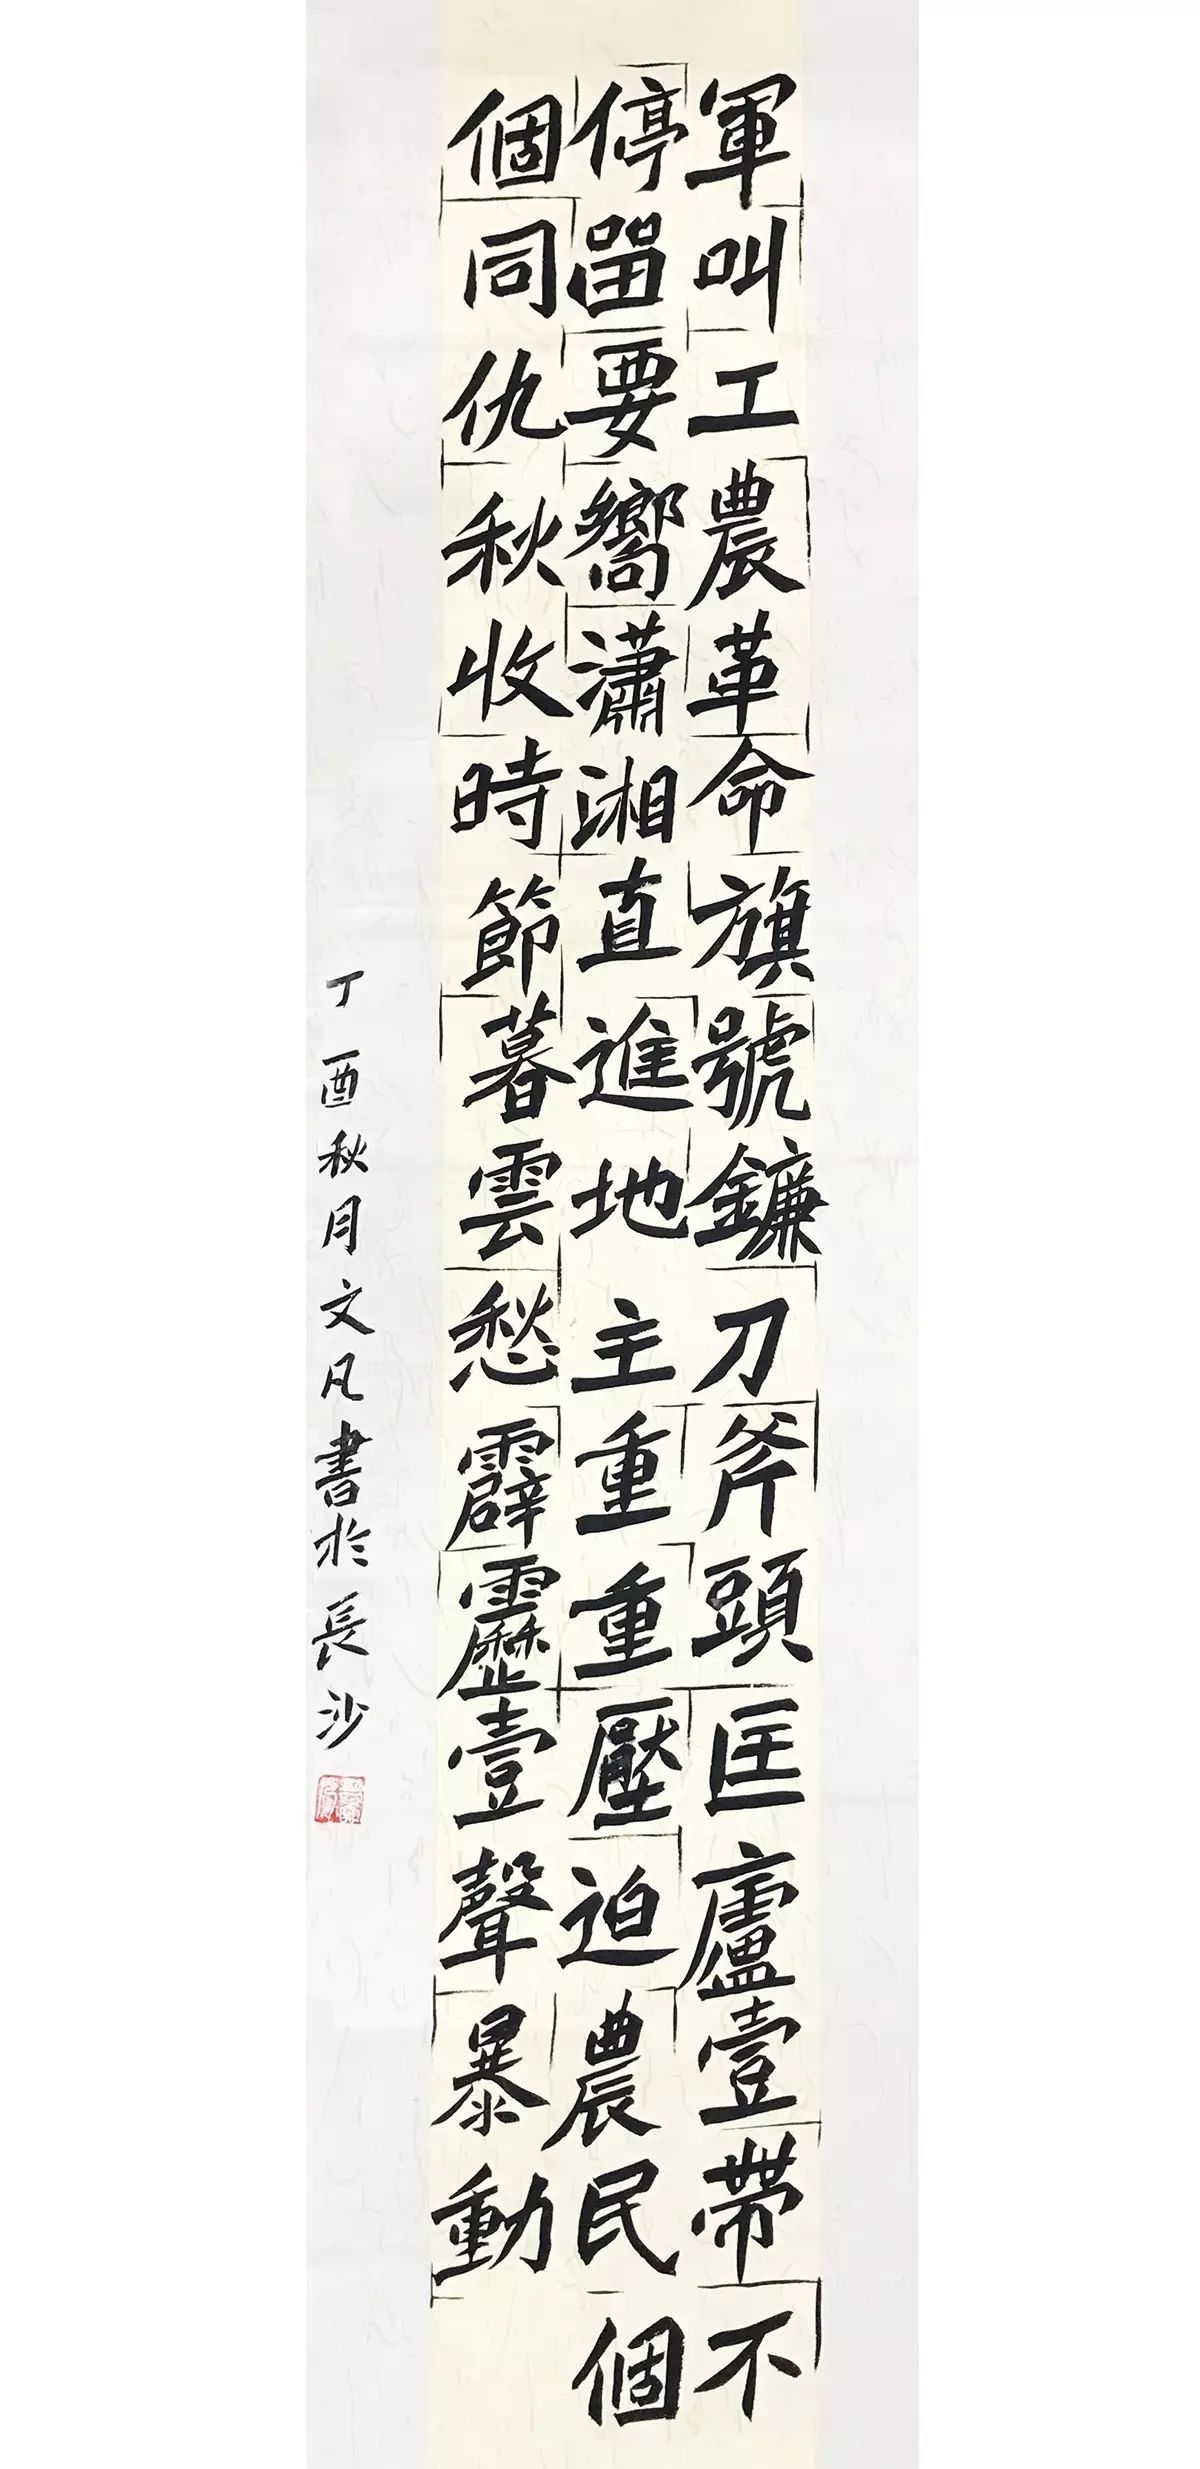 軍叫工農革命旗號鐮刀斧頭匡廬壹帶不
停畱要嚮瀟湘直進地主重重壓迫農民個
個同仇秋收時節暮雲愁霹靂壹聲暴動
丁酉秋月文凡書於長沙